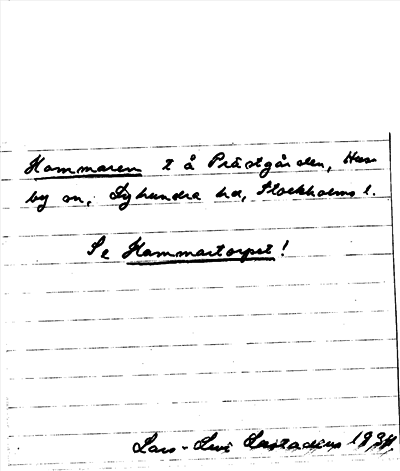 Hammaren t å Prästgården, Hus-
by sn, Lyhundra hd, Stockholms l.
Se Hammartorpet!
Lars-Levi Læstadius